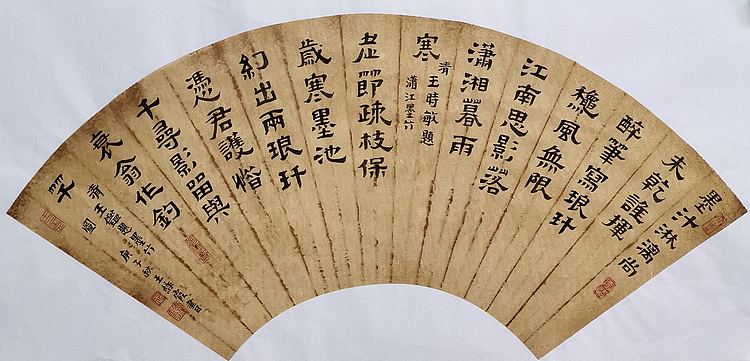 墨汁淋漓尚
未乾誰揮
醉筆寫琅玕
龝風無限
江南思影落
瀟湘暮雨
寒
清王時敏題
瀟江墨竹
老節疎枝保
歲寒墨池
幻出兩琅玕
憑君護惜
千尋影留與
衰翁作釣
竿
清王鑑題墨竹
圖 庚子秋王書